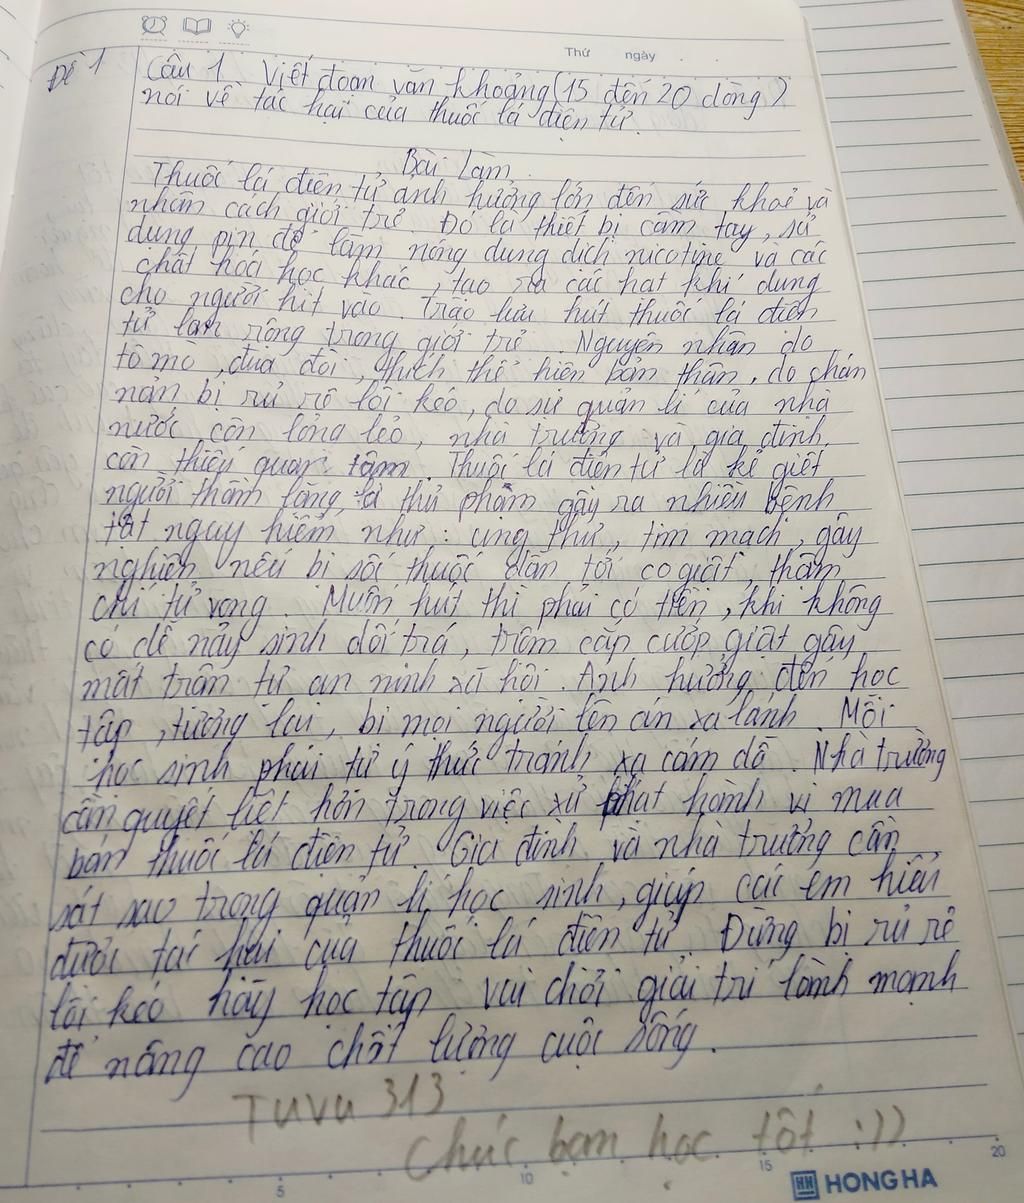 Thứ ngày
Đề 1
Câu 1 Viết đoạn văn khoảng (15 đến 20 dòng)
nói về tác hại của thuốc lá điện tử.
Bài Làm
Thuốc lá điện tử ảnh hưởng lớn đến sức khoẻ và
nhân cách giới trẻ. Đó là thiết bị cầm tay, sử
dụng pin để làm nóng dung dịch nicotine và các
chất hóa học khác, tạo ra các hạt khí dung
cho người hít vào. Trào lưu hút thuốc lá điện
tử lan rộng trong giới trẻ. Nguyên nhân do
tò mò, đua đòi, thích thể hiện bản thân, do chán
nản bị rủ rê lôi kéo, do sự quản lí của nhà
nước còn lỏng lẻo, nhà trường và gia đình
còn thiếu quan tâm. Thuốc lá điện tử là kẻ giết
người thầm lặng, là thủ phạm gây ra nhiều bệnh
tật nguy hiểm như: ung thư, tim mạch, gây
nghiện nếu bị sốc thuốc dẫn tới co giật, thậm
chí tử vong. Muốn hút thì phải có tiền, khi không
có dễ nảy sinh dối trá, trộm cắp cướp giật gây
mất trận tự an ninh xã hội. Ảnh hưởng đến học
tập, tương lai, bị mọi người lên án xa lánh. Mỗi
học sinh phải tự ý thức tránh xa cám dỗ. Nhà trường
cần quyết liệt hơn trong việc xử phạt hành vi mua
bán thuốc lá điện tử. Gia đình và nhà trường cần
sát sao trong quản lí học sinh, giúp các em hiểu
được tác hại của thuốc lá điện tử. Đừng bị rủ rê
lôi kéo hãy học tập vui chơi giải trí lành mạnh
để nâng cao chất lượng cuộc sống.
TUVU 313
Chúc bạn học tốt :))
5 10 15 20
HH HONG HA